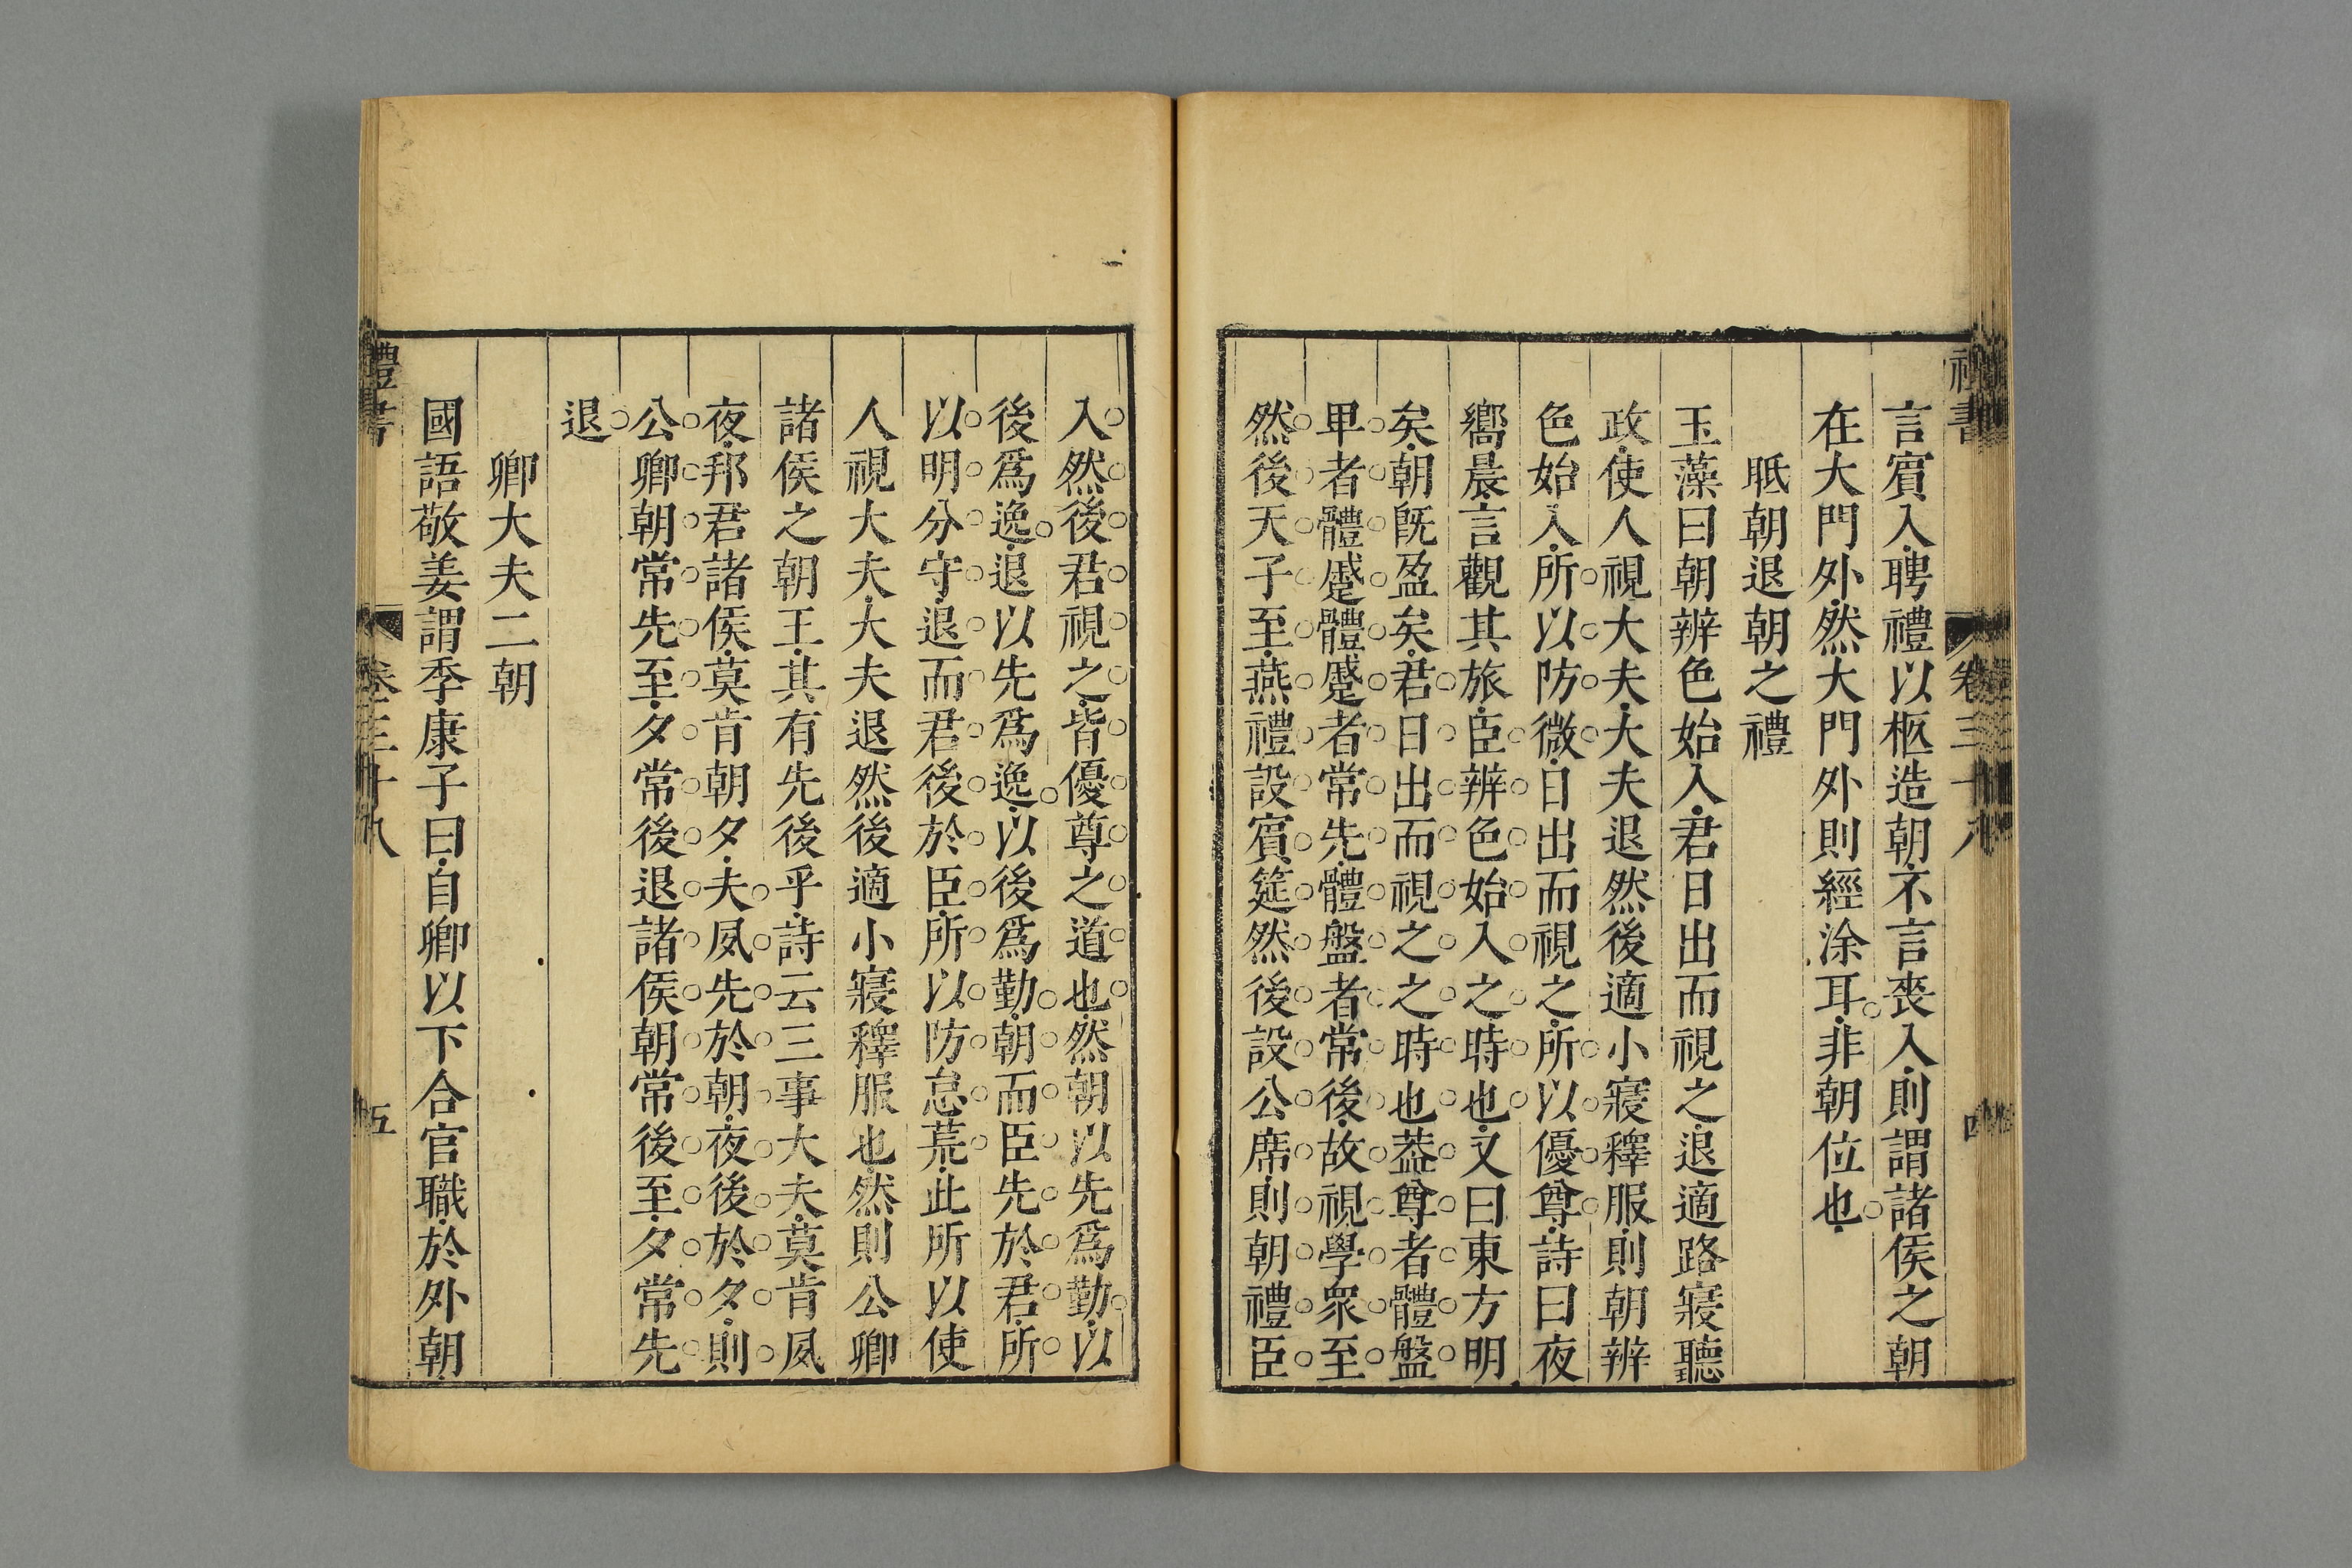 言賓入聘禮以柩造朝不言喪入則謂諸侯之朝
在大門外然大門外則經涂耳非朝位也
眡朝退朝之禮
玉藻曰朝辨色始入君日出而視之退適路寢聽
政使人視大夫大夫退然後適小寢釋服則朝辨
色始入所以防微日出而視之所以優尊詩曰夜
嚮晨言觀其旅臣辨色始入之時也又曰東方明
矣朝旣盈矣君日出而視之之時也葢尊者體盤
卑者體蹙體蹙者常先體盤者常後故視學衆至
然後天子至燕禮設賓筵然後設公席則朝禮臣
卷三十八
四
入然後君視之皆優尊之道也然朝以先爲勤以
後爲逸退以先爲逸以後爲勤朝而臣先於君所
以明分守退而君後於臣所以防怠荒此所以使
人視大夫大夫退然後適小寢釋服也然則公卿
諸侯之朝王其有先後乎詩云三事大夫莫肯夙
夜邦君諸侯莫肯朝夕夫夙先於朝夜後於夕則
公卿朝常先至夕常後退諸侯朝常後至夕常先
退
卿大夫二朝
國語敬姜謂季康子曰自卿以下合官職於外朝
禮書
卷三十八
五